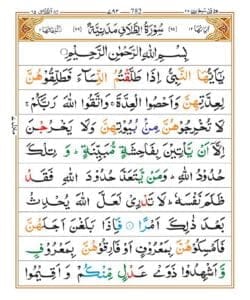 سُوْرَةُ الطَّلَاقِ مَدَنِيَّةٌ
بِسْمِ اللّٰهِ الرَّحْمٰنِ الرَّحِيْمِ
يٰٓاَيُّهَا النَّبِيُّ اِذَا طَلَّقْتُمُ النِّسَآءَ فَطَلِّقُوْهُنَّ
لِعِدَّتِهِنَّ وَاَحْصُوا الْعِدَّةَ وَاتَّقُوا اللّٰهَ رَبَّكُمْ
لَا تُخْرِجُوْهُنَّ مِنْۢ بُيُوْتِهِنَّ وَلَا يَخْرُجْنَ
اِلَّآ اَنْ يَّاْتِيْنَ بِفَاحِشَةٍ مُّبَيِّنَةٍ وَتِلْكَ
حُدُوْدُ اللّٰهِ وَمَنْ يَّتَعَدَّ حُدُوْدَ اللّٰهِ فَقَدْ
ظَلَمَ نَفْسَهٗ لَا تَدْرِيْ لَعَلَّ اللّٰهَ يُحْدِثُ
بَعْدَ ذٰلِكَ اَمْرًا فَاِذَا بَلَغْنَ اَجَلَهُنَّ
فَاَمْسِكُوْهُنَّ بِمَعْرُوْفٍ اَوْ فَارِقُوْهُنَّ بِمَعْرُوْفٍ
وَّاَشْهِدُوْا ذَوَيْ عَدْلٍ مِّنْكُمْ وَاَقِيْمُوا